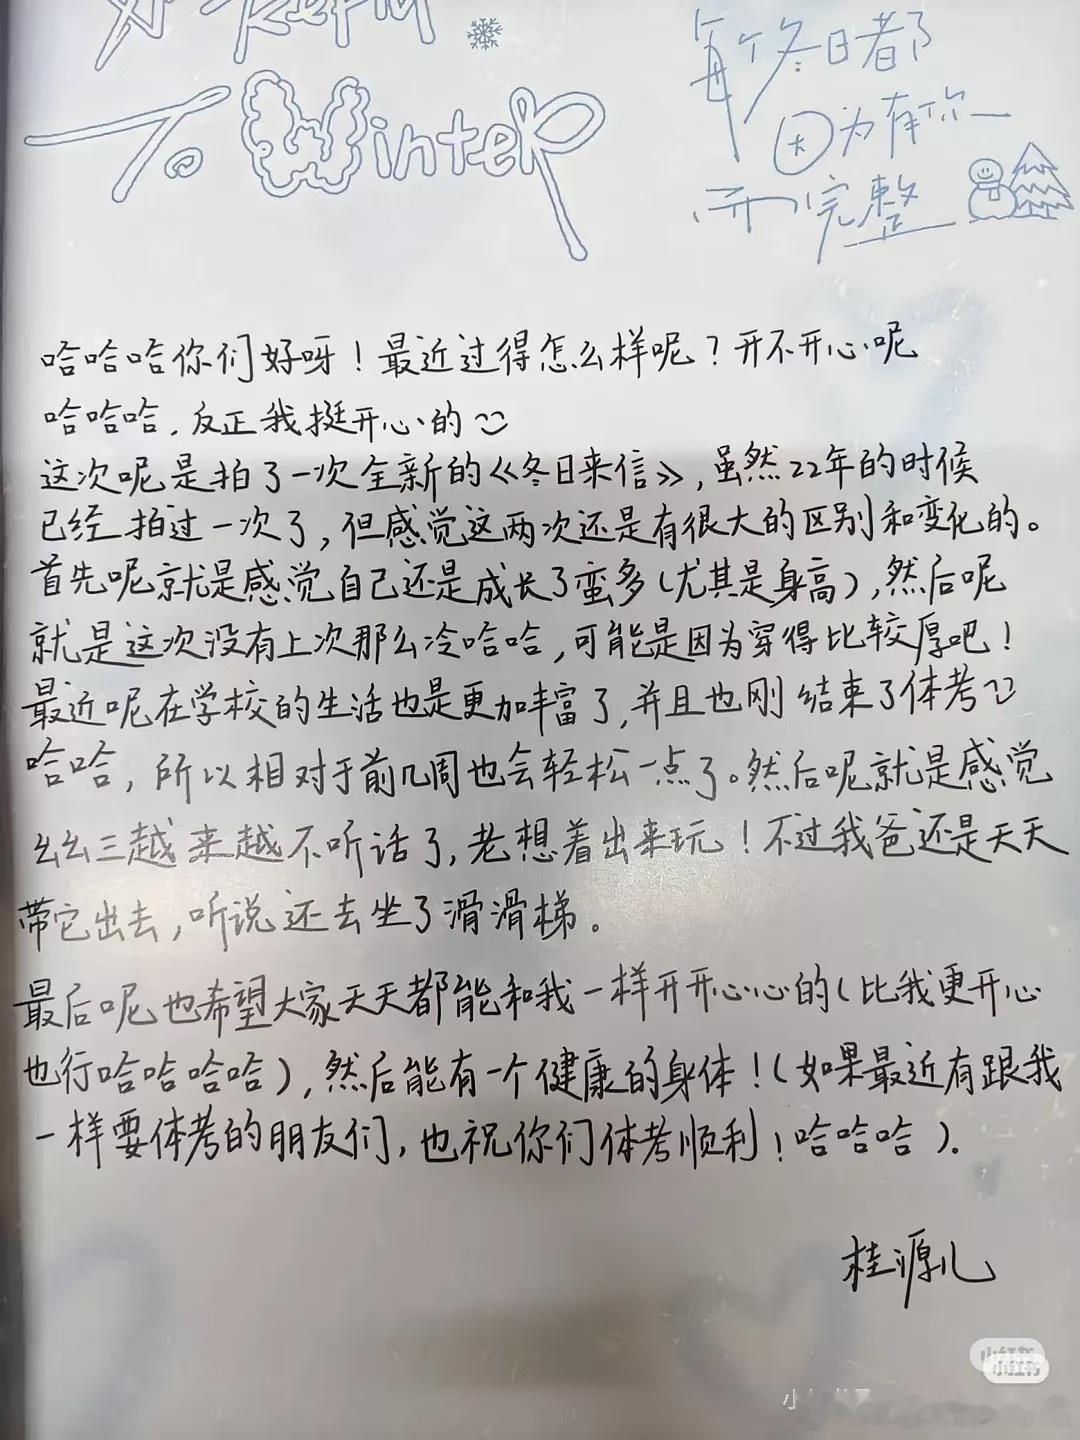 To Winter
每个冬日都
因为有你
而完整
哈哈哈你们好呀！最近过得怎么样呢？开不开心呢
哈哈哈，反正我挺开心的
这次呢是拍了一次全新的《冬日来信》，虽然22年的时候
已经拍过一次了，但感觉这两次还是有很大的区别和变化的。
首先呢就是感觉自己还是成长了蛮多（尤其是身高），然后呢
就是这次没有上次那么冷哈哈，可能是因为穿得比较厚吧！
最近呢在学校的生活也是更加丰富了，并且也刚结束了体考
哈哈，所以相对于前几周也会轻松一点了。然后呢就是感觉
幺幺三越来越不听话了，老想着出来玩！不过我爸还是天天
带它出去，听说还去坐了滑滑梯。
最后呢也希望大家天天都能和我一样开开心心的（比我更开心
也行哈哈哈哈），然后能有一个健康的身体！（如果最近有跟我
一样要体考的朋友们，也祝你们体考顺利！哈哈哈）.
桂源儿
小红书
小红书